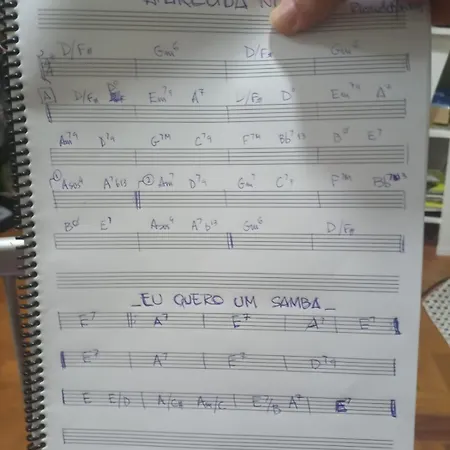 D/F# Gm6 D/F# Gm6
A D/F# Em7 9 A7 D/F# Em7 9
Am7 9 D7 9 G7M C7 9 F7M Bb7 13 Bø E7
1 Asus4 A7 b13 2 Am7 D7 9 Gm7 C7 9 F7M
Bø E7 Asus4 A7 b13 Gm6 D/F#
EU QUERO UM SAMBA
E7 A7 E7 A7 E7
E7 A7 E7 D7 9
E E/D A/C# Am/C E7/B A7 E7